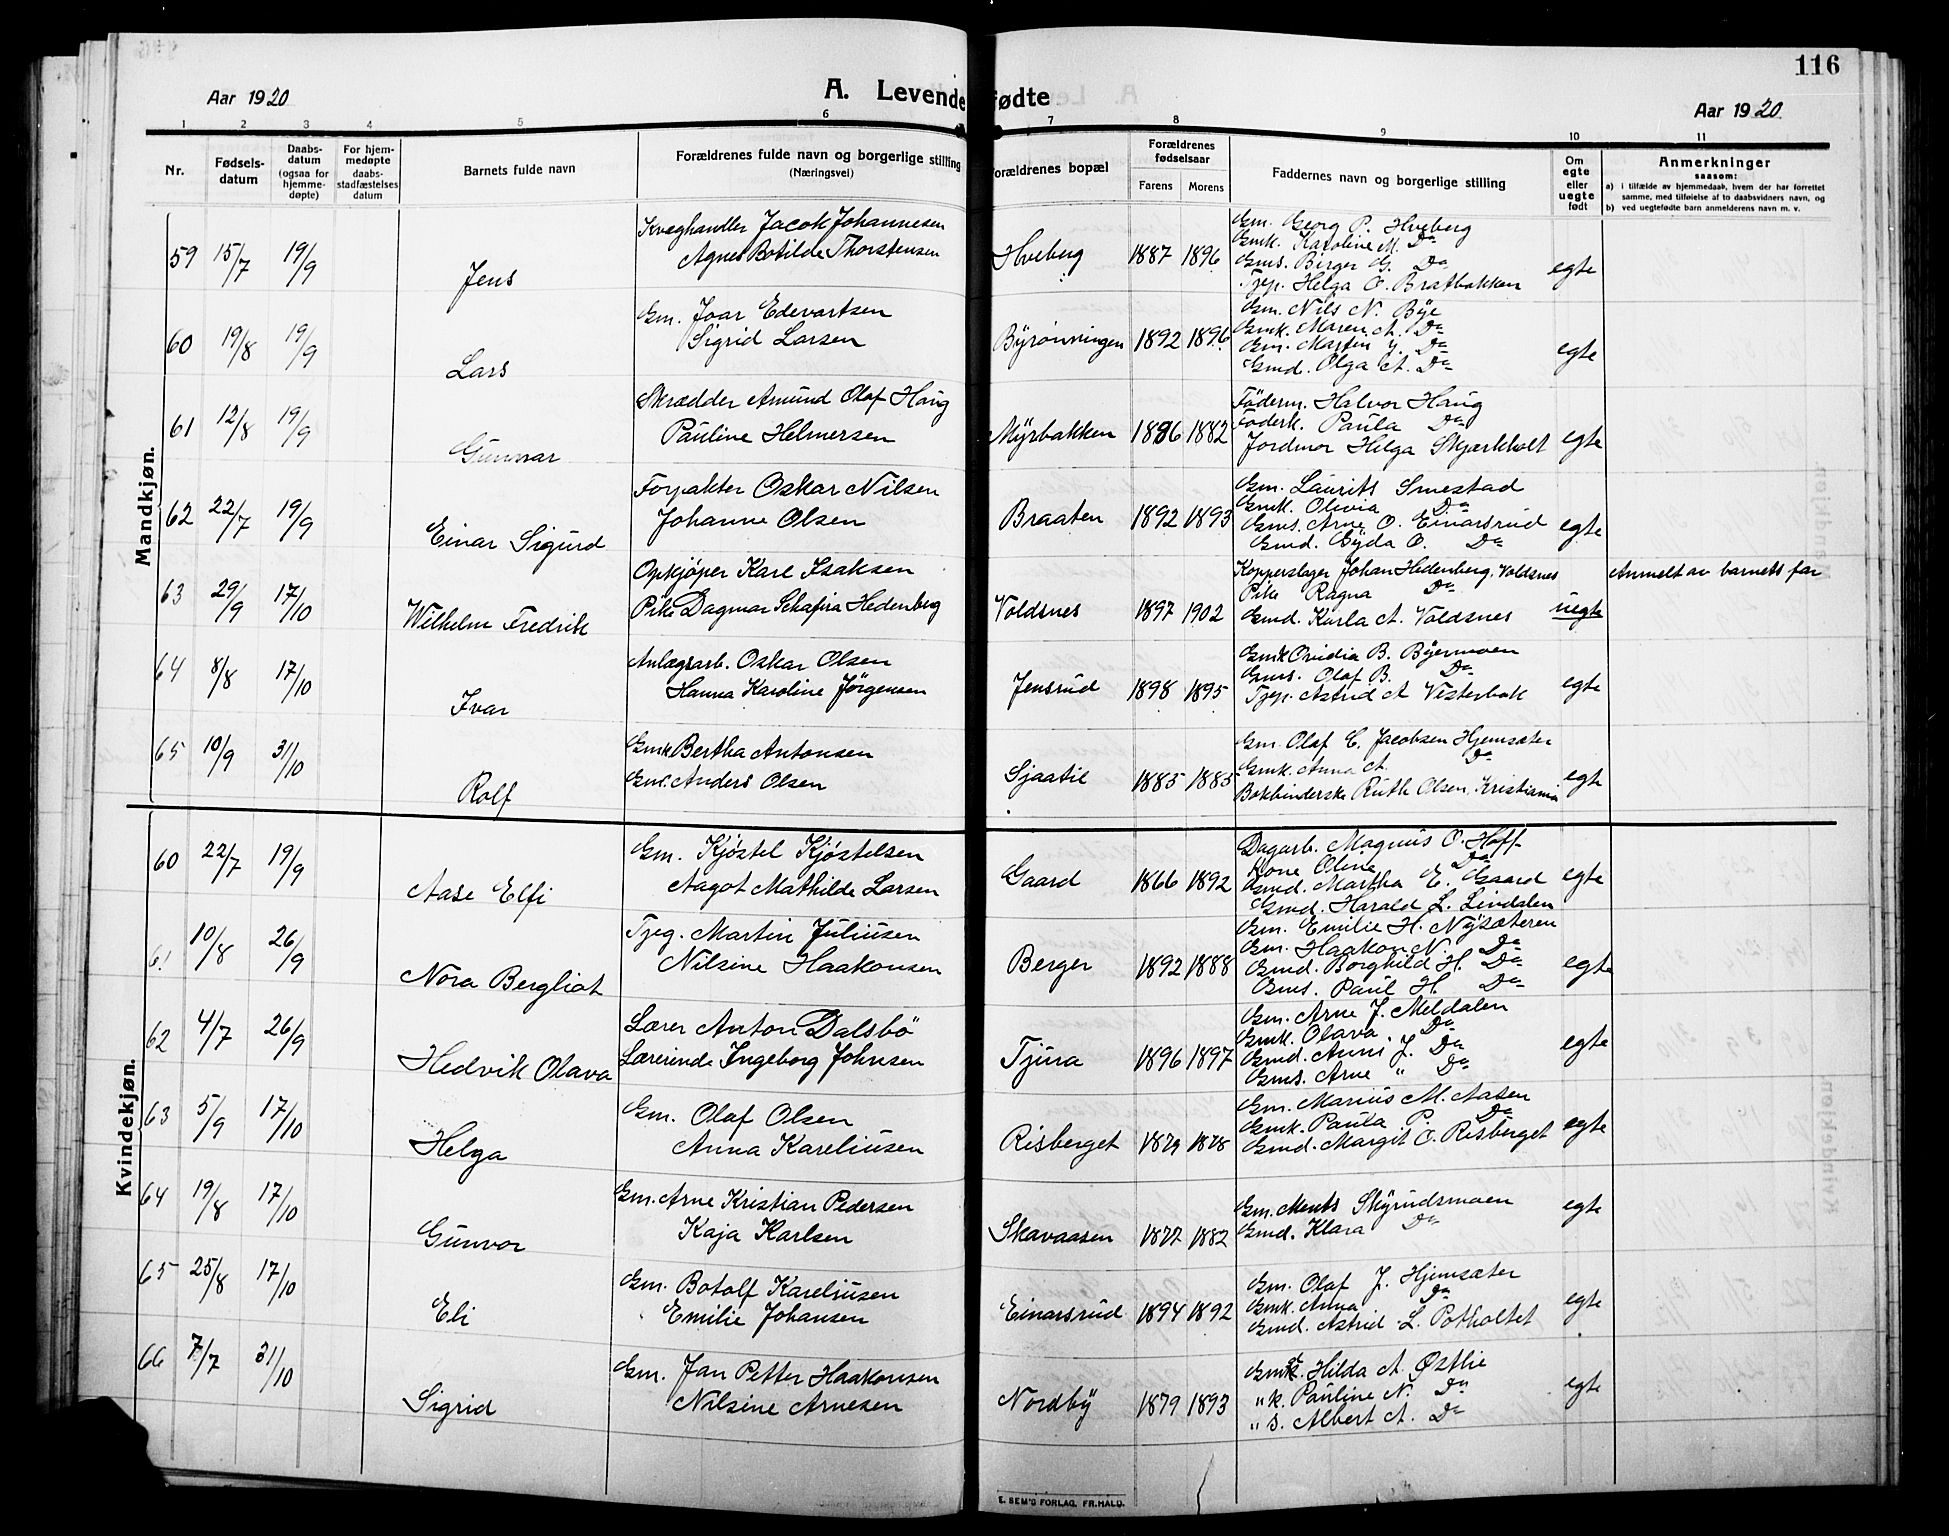 116
Aar 1920
A. Levendefødte
Aar 1920
1 2 3 4 5 6 7 8 9 10 11
Nr.
Fødsels-
datum
Daabs-
datum
(ogsaa for
hjemme-
døpte)
For hjem-
medøpte
daabs-
stadfæstelses
datum
Barnets fulde navn
Forældrenes fulde navn og borgerlige stilling
(Næringsvei)
Forældrenes bopæl
Forældrenes
fødselsaar
Farens Morens
Faddernes navn og borgerlige stilling
Om
egte
eller
uegte
født
Anmerkninger
saasom:
a) i tilfælde av hjemmedaab, hvem der har forrettet
samme, med tilføielse af to daabsvidners navn, og
b) ved uegtefødte barn anmelderens navn m. v.
Mandkjøn.
59 15/7 19/9 Jens
Kvæghandler Jacok Johannesen
Agnes Botilde Thorstensen
Hveberg 1887 1896
Gm. Georg P. Hveberg
Gmk. Karoline M. Do
Gms. Birger G. Do
Tjep. Helga O. Bratbakken
egte
60 19/8 19/9 Lars
Gm. Joar Edevartsen
Sigrid Larsen
Byrønningen 1892 1896
Gm. Nils N. Bye
Gmk. Maren A. Do
Gm. Martin Do
Gmd. Olga A. Do
egte
61 12/8 19/9 Gunnar
Skrædder Amund Olaf Haug
Pauline Helmersen
Myrbakken 1886 1882
Føderm. Halvor Haug
Føderk. Paula Do
Jordmor Helga Skjærkholt
egte
62 22/7 19/9 Einar Sigurd
Forpakter Oskar Nilsen
Johanne Olsen
Braaten 1892 1893
Gm. Laurits Smestad
Gmk. Olivia Do
Gms. Arne O. Einarsrud
Gmd. Eyda O. Do
egte
63 29/9 17/10 Wilhelm Fredrik
Opkjøper Karl Isaksen
Pike Dagmar Schafira Hedenberg
Voldsnes 1897 1902
Kopperslager Johan Hedenberg, Voldsnes
Pike Ragna Do
Gmd. Karla A. Voldsnes
uegte
Anmelt av barnets far
64 8/8 17/10 Ivar
Anlægsarb. Oskar Olsen
Hanna Karoline Jørgensen
Jensrud 1898 1895
Gmk Ovidia B. Byermoen
Gms. Olaf B. Do
Tjep. Astrid A Vesterbak
egte
65 10/9 31/10 Rolf
Gmk Bertha Antonsen
Gm. Anders Olsen
Sjaatil 1885 1885
Gm. Olaf C. Jacobsen Hjemsæter
Gmk. Anna A. Do
Bokbinderske Ruth Olsen, Kristiania
egte
Kvindekjøn.
60 22/7 19/9 Aase Elfi
Gm. Kjøstel Kjøstelsen
Aagot Mathilde Larsen
Gaard 1866 1892
Dagarb. Magnus O. Hoff
Kone Oline Do
Gmd. Martha E. Gaard
Gmd. Harald L. Lindalen
egte
61 10/8 26/9 Nora Bergliot
Tjeg. Martin Juliusen
Nilsine Haakonsen
Berger 1892 1888
Gm. Emilie H. Nysæteren
Gm. Haakon N. Do
Gmd. Borghild H. Do
Gms. Paul H. Do
egte
62 4/7 26/9 Hedvik Olava
Lærer Anton Dalsbø
Lærerinde Ingeborg Johnsen
Tjura 1896 1897
Gm. Arne J. Meldalen
Gmk. Olava Do
Gmd. Anni J. Do
Gms. Arne " Do
egte
63 5/9 17/10 Helga
Gm. Olaf Olsen
Anna Kareliusen
Risberget 1879 1878
Gm. Marius M. Aasen
Gmk. Paula P. Do
Gmd. Margit O. Risberget
egte
64 19/8 17/10 Gunvor
Gm. Arne Kristian Pedersen
Kaja Karlsen
Skavaasen 1877 1882
Gm. Ments Skyrudsmoen
Gmd. Klara Do
egte
65 25/8 17/10 Eli
Gm. Botolf Kareliusen
Emilie Johansen
Einarsrud 1894 1892
Gm. Olaf J. Hjemsæter
Gmk. Anna Do
Gmd. Astrid L. Potholtet
egte
66 7/7 31/10 Sigrid
Gm. Jan Petter Haakonsen
Nilsine Arnesen
Nordby 1879 1893
Gmk. Hilda A. Østlie
" k. Pauline N. Do
" s. Albert A. Do
egte
E. SEM'S FORLAG, FR.HALD.